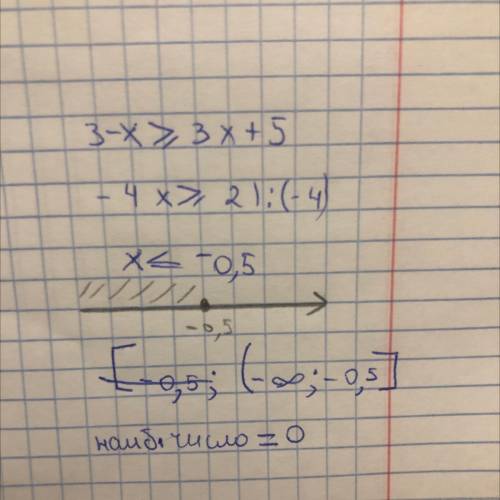 3-x ⩾ 3x+5
-4x ⩾ 2|:(-4)
x ⩽ -0,5
-0,5
[-0,5; (-∞; -0,5]
наиб. число = 0